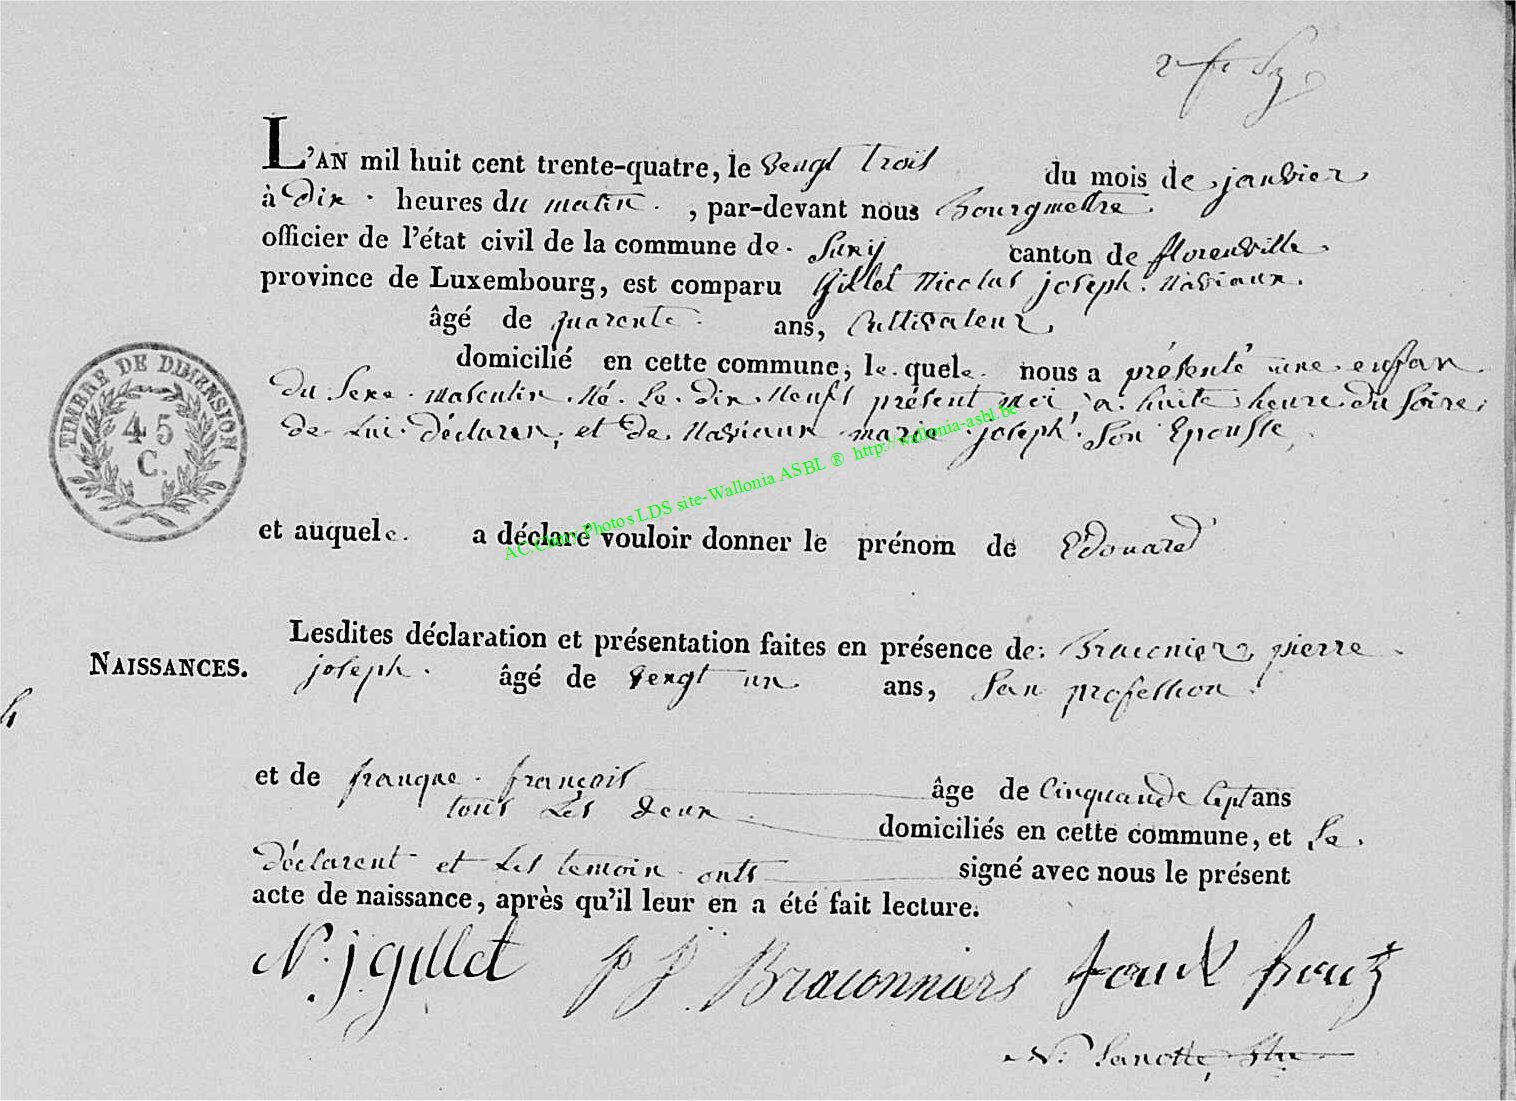 L'AN mil huit cent trente-quatre, le vengt trois du mois de janvier
à dix heures du matin, par-devant nous Bourgmettre
officier de l'état civil de la commune de Suxÿ canton de florenville
province de Luxembourg, est comparu Gillet Nicolas joseph. Naviaux.
âgé de quarente ans, Cultivateur,
domicilié en cette commune, le quele nous a présenté une enfan
du Sexe masculin Né Le dix Neufs présent moi, a huite heure du Soire
de Lui déclaren, et de Naviaux marie joseph Son Epousse,
TIMBRE DE DIMENSION
45
C.
AC.Chevy Photos LDS site-Wallonia ASBL ® http://wallonia-asbl.be
et auquele a déclaré vouloir donner le prénom de Edouard
Lesdites déclaration et présentation faites en présence de: Braconier, pierre
NAISSANCES.
joseph. âgé de vengt un ans, San profession
et de franque françois âge de Cinquande Septans
tous Les deux domiciliés en cette commune, et Le
déclarent et Les temoin onts signé avec nous le présent
acte de naissance, après qu'il leur en a été fait lecture.
N. j gillet P J Braconniers
N. Lanotte